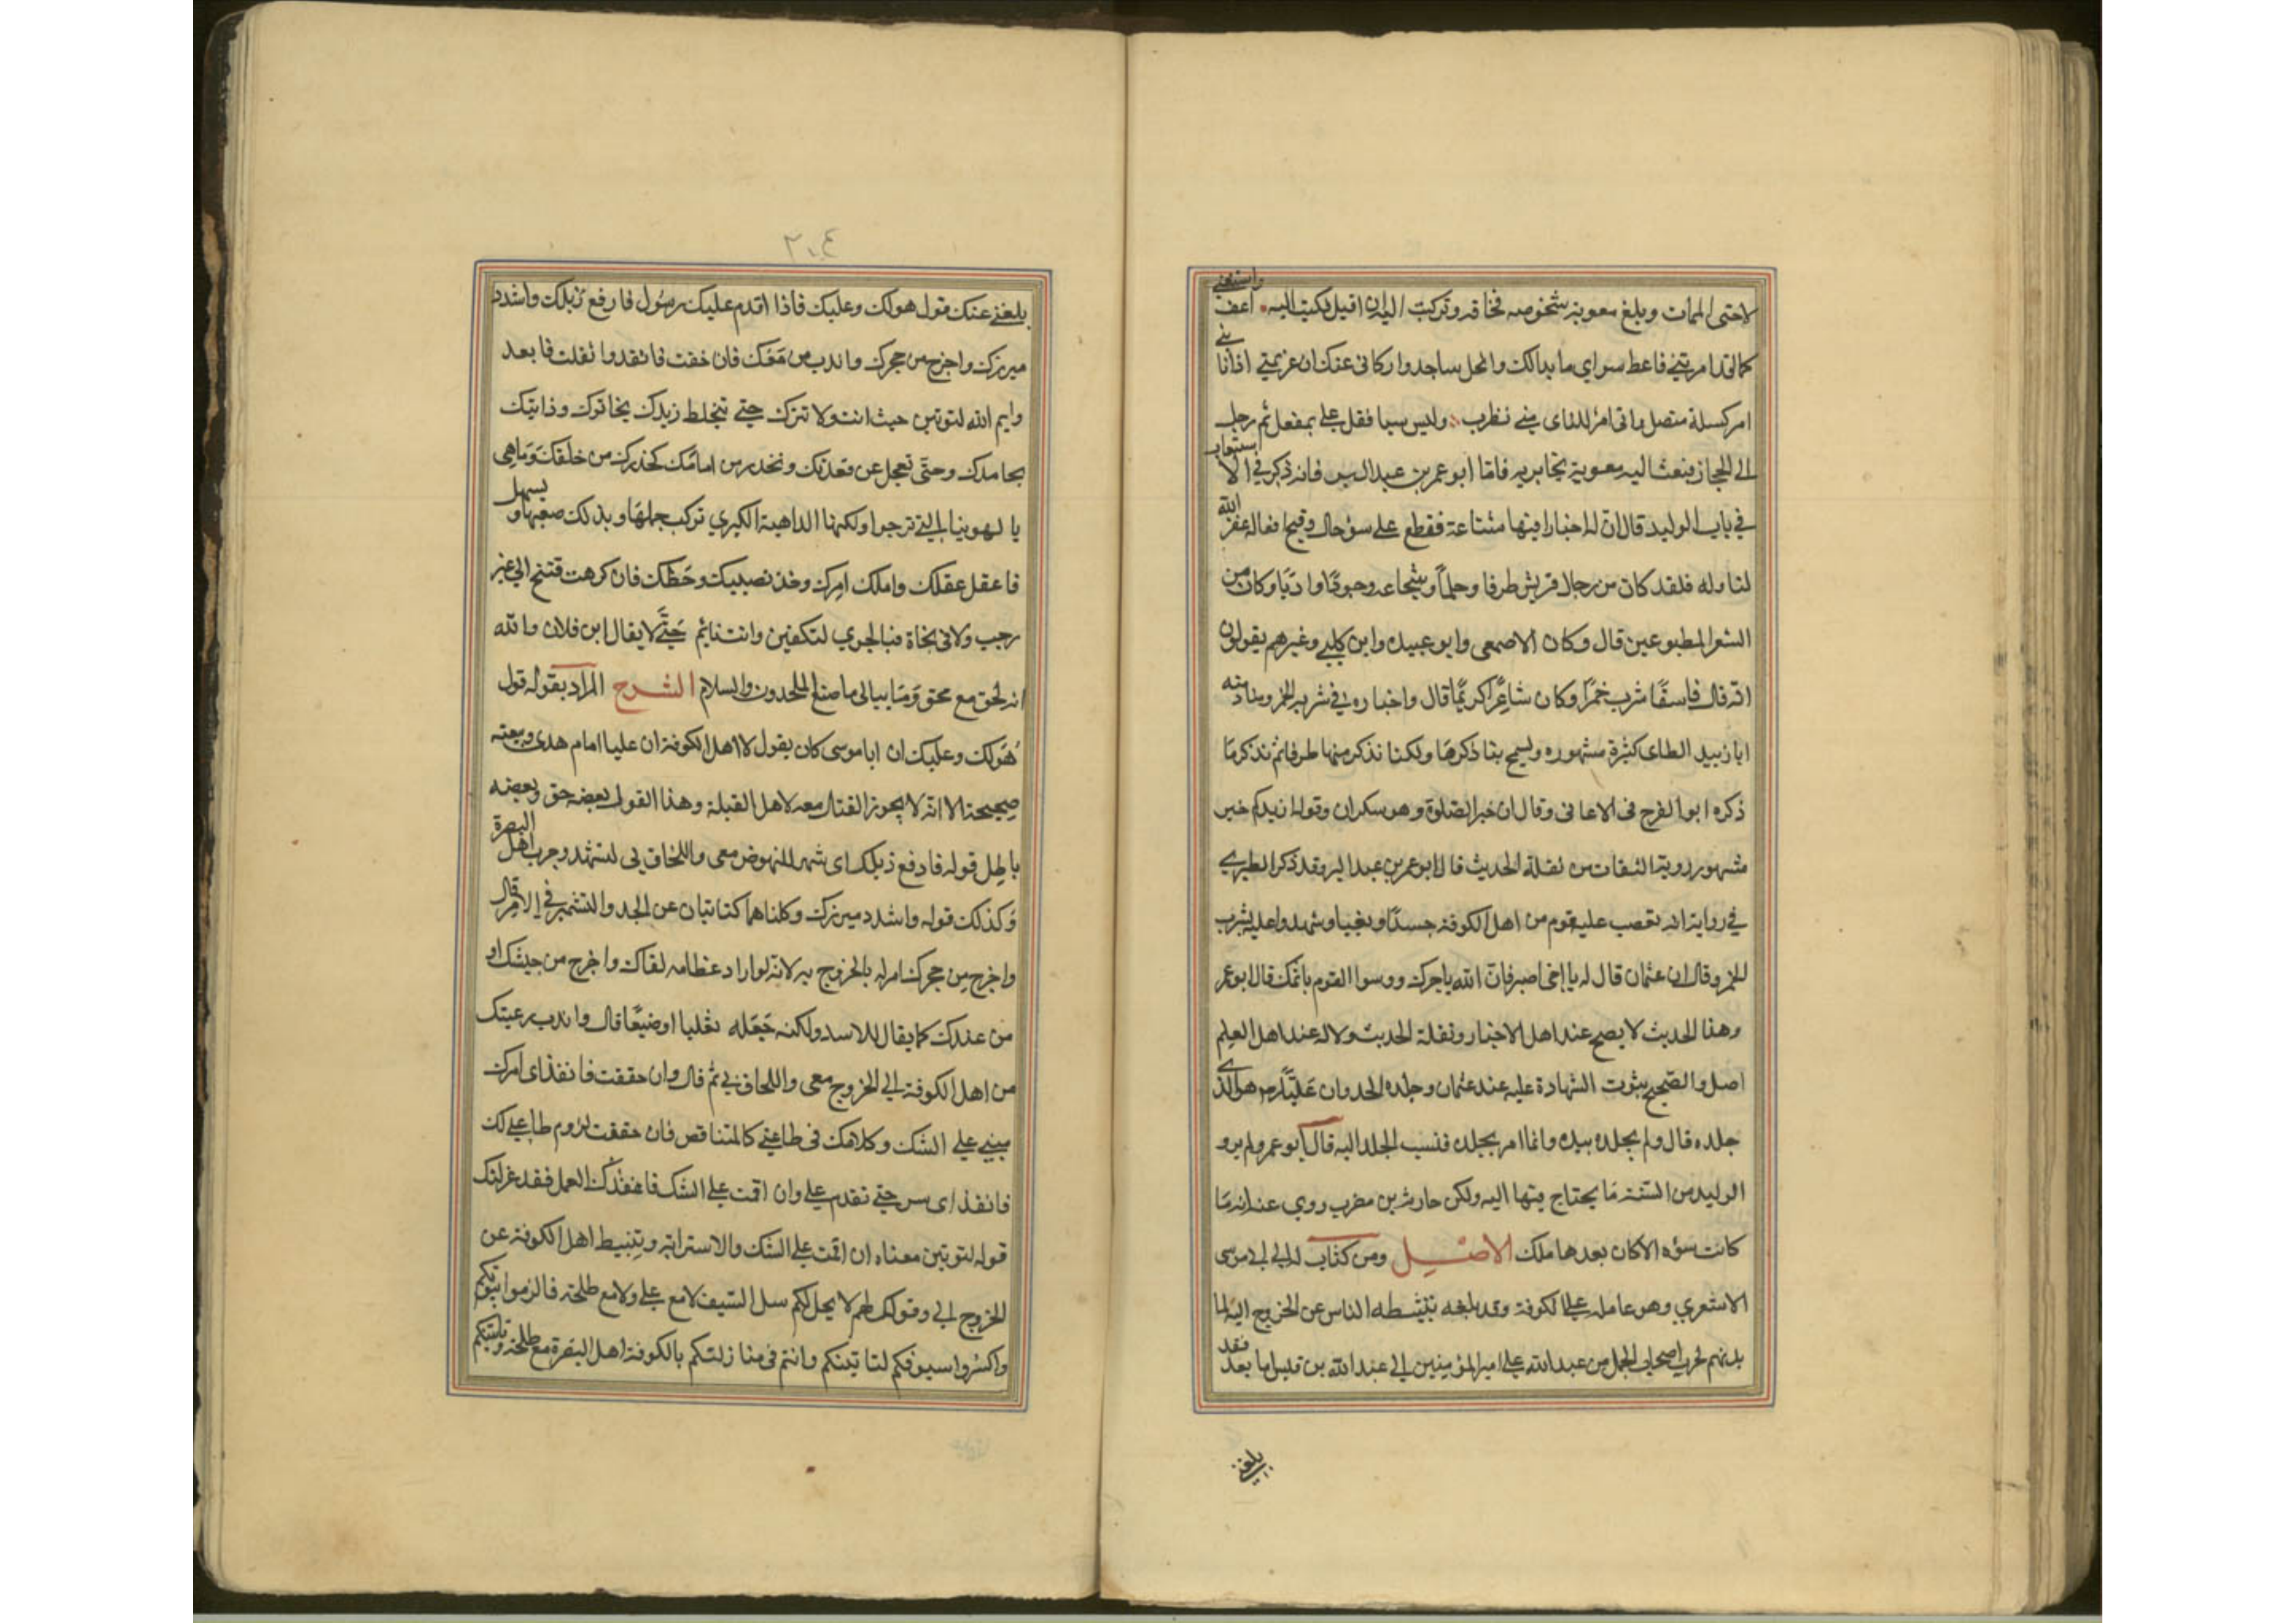 لاحتى الممات وبلغ معوية شخوصه فخافه وتركب اليه ان اقبل فكتب اليه اعف واستعفى
امر كسلة متصل ماتى امر للناى بنى نظرب وليس سيا فقل على بمفعل ثم رحل
الى الحجاز فبعث اليه معوية بجايزيه فاما ابو عمر بن عبد البر فانه ذكر في الاستيعاب
في باب الوليد قال ان له اخبارا فيها شناعة فقطع على سؤ حاله وقبح فعاله غفر الله
لنا وله فلقد كان من رجال قريش ظرفا وحلما وشجاعة وجودا وادبا وكان من
الشعرا المطبوعين قال وكان الاصمعي وابو عبيده وابن كلبي وغيرهم يقولون
انه كان فاسقا شرب خمرا وكان شاعرا كريما قال واخباره في شربه الخمر ومنادمته
ابا زبيد الطاى كثيرة مشهوره ويسمج بنا ذكرها ولكنا نذكر منها طرفا ثم نذكر ما
ذكره ابو الفرج في الاغاني وقال ان خبر الصلوة وهو سكران وقوله ازيدكم خبر
مشهور رويته الثقات من نقلة الحديث قال ابو عمر بن عبد البر وقد ذكر الطبري
في رواية انه تعصب عليه قوم من اهل الكوفة حسدا وبغيا وشهدوا عليه بشرب
الخمر وقال ان عثمان قال له يا اخي اصبر فان الله ياجرك ووسوا القوم باثمك قال ابو عمر
وهذا الحديث لا يصح عند اهل الاخبار ونقلة الحديث ولا له عند اهل العلم
اصل والصحيح ثبوت الشهادة عليه عند عثمان وجلده الحد وان عليا هو الذى
جلده قال ولم يجلده بيده وانما امر بجلده فنسب الجلد اليه قال ابو عمر ولم يرو
الوليد من السنة ما يحتاج فيها اليه ولكن حارثه بن مضرب روي عنه انه ما
كانت نبوه الا كان بعدها ملك الاصل ومن كتاب له الى ابى موسى
الاشعري وهو عامله على الكوفة وقد بلغه تثبيطه الناس عن الخروج اليه لما
بدبهم لحرب اصحاب الجمل من عبد الله على امير المؤمنين الى عبد الله بن قيس اما بعد فقد
بلغني
٢٠٤
بلغني عنك قول هو لك وعليك فاذا اقدم عليك رسولي فارفع ذيلك واشدد
ميزرك واخرج من حجرك واندب من معك فان حققت فانفذ وان تفشلت فابعد
وايم الله لتوتين حيث انت ولا تترك حتى تخلط زبدك بخاثرك وذائبك
بجامدك وحتى تعجل عن قعدتك وتحذر من امامك كحذرك من خلفك وما هي
بالهوينا التي ترجوا ولكنها الداهية الكبرى تركب جملها ويذلك صعبها ويسهل
فاعقل عقلك واملك امرك وخذ نصيبك وحظك فان كرهت فتنح الى غير
رحب ولا في نجاة فبالحري لتكفين وانت نايم حتى لا يقال اين فلان والله
انه لحق مع محق وما يبالى ما صنع الملحدون والسلام الشرح المراد بقوله قول
هو لك وعليك ان ابا موسى كان يقول لاهل الكوفة ان عليا امام هدى وبيعته
صحيحة الا انه لا يجوز القتال معه لاهل القبلة وهذا القول بعضه حق وبعضه
باطل قوله فارفع ذيلك اى شمر للنهوض معى واللحاق بي لتشهد حرب اهل البصرة
وكذلك قوله واشدد ميزرك وكلتاهما كنايتان عن الجد والتشمير في الامر قال
واخرج من حجرك امر له بالخروج من لانه لو اراد عظامه لقال واخرج من جيشك او
من عندك كما يقال للاسد ولكنه جعله ثعلبا او ضبعا قال واندب رعيتك
من اهل الكوفة الى الخروج معى واللحاق بي ثم قال وان حققت فانفذ اى امرك
مبني على الشك وكلامك في طاعتي كالمتناقض فان حققت لزوم طاعتي لك
فانفذ اى سر حتى تقدم على وان اقمت على الشك فاعتزل العمل فقد عزلتك
قوله لتوتين معناه ان اقمت على الشك والاسترابة وتثبيط اهل الكوفة عن
الخروج الى وقولك لهم لا يحل لكم سل السيف لا مع على ولا مع طلحة فالزموا بيوتكم
واكسروا سيوفكم لتاتينكم وانتم في منازلكم بالكوفة اهل البصرة مع طلحة وناتينكم